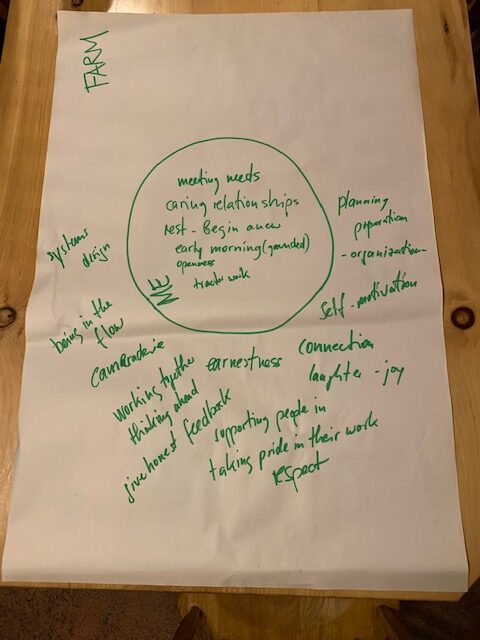 FARM
meeting needs
caring relationships
rest - Begin anew
early morning (grounded)
openness
tractor work
ME
planning
preparation
- organization -
self - motivation
connection
laughter - joy
systems
design
being in the
flow
camaraderie
earnestness
working together
thinking ahead
give honest feedback
supporting people in
taking pride in their work
respect